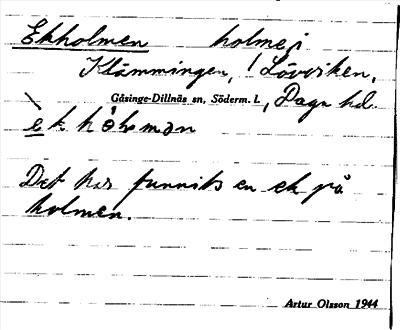 Ekholmen holme i
Klämmingen, Lövviken,
Gåsinge-Dillnäs sn, Söderm. l., Daga hd.
Det har funnits en ek på
holmen.
Artur Olsson 1944